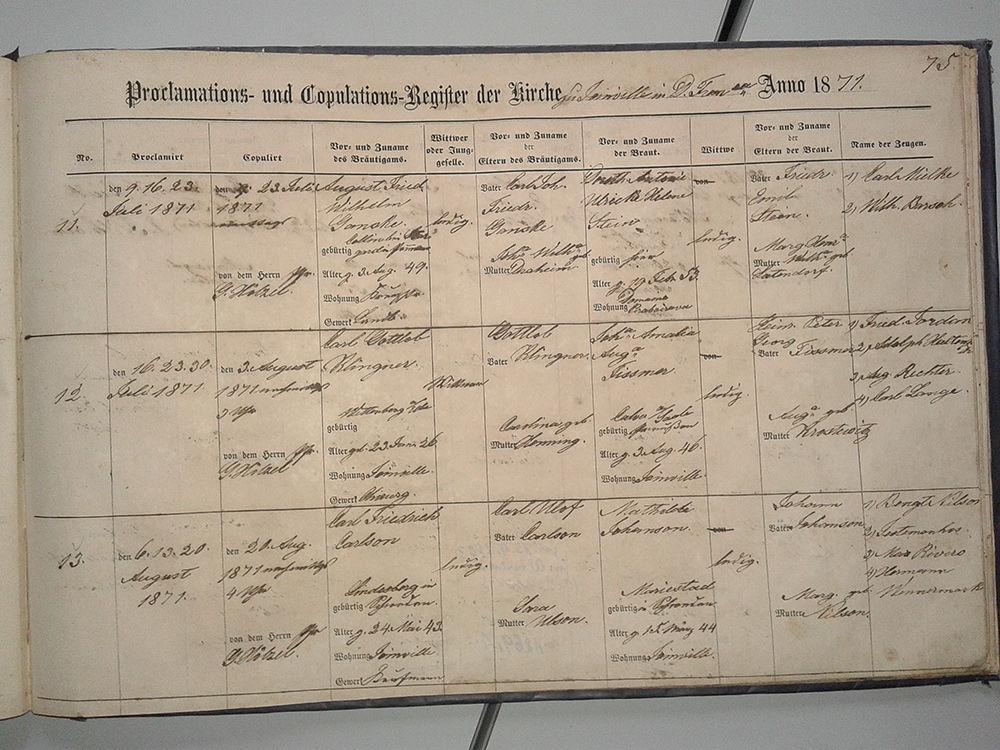 75.
Proclamations- und Copulations-Register der Kirche zu Joinville in D. Anno 1871.
No.
Proclamirt
Copulirt
Vor- und Zuname
des Bräutigams.
Wittwer
oder Jung-
geselle.
Vor- und Zuname
der
Eltern des Bräutigams.
Vor- und Zuname
der Braut.
Wittwe
Vor- und Zuname
der
Eltern der Braut.
Name der Zeugen.
11.
den 9. 16. 23
Juli 1871
den 23 Juli
1871
von dem Herrn Pfr.
G. Hölzel.
August Fried.
Wilhelm
Ganske
gebürtig
Alter g. 3 Aug. 49.
Wohnung
Gewerk Landb.
ledig.
Vater Carl Joh.
Friedr.
Ganske
Mutter Draheim
Doroth. Antonie
Ulricke Helene
Stein
gebürtig hier
Alter g. 19 Feb 53.
Wohnung
von
ledig.
Vater Friedr.
Emil
Stein.
Mutter
Latendorf.
1) Carl Milke
2) Wilh. Barsch.
12.
den 16. 23. 30.
Juli 1871
den 3. August
1871 nachmittgs
3 Uhr
von dem Herrn Pfr.
G. Hölzel
Carl Gottlob
Klingner.
gebürtig
Alter geb. 23 Jan. 26
Wohnung Joinville.
Gewerk Chirurg.
Wittwer
Gottlob
Vater Klingner
Carolina geb.
Mutter Henning.
Joh.ª Amalia
Aug.ª
Tissmer
Calbe a/Saale
gebürtig Preussen
Alter g. 3 Aug. 46.
Wohnung Joinville.
von
ledig.
Heinr. Peter
Georg
Vater Tissmer
Aug.ª geb
Mutter Krostewitz
1) Fried. Jordan
2) Adolph
3) Aug. Richter
4) Carl Lange.
13.
den 6. 13. 20.
August
1871.
den 20 Aug.
1871 nachmittgs
4 Uhr
von dem Herrn Pfr
G. Hölzel.
Carl Friedrich
Carlson
Lindesberg in
gebürtig Schweden.
Alter g. 24 Mai 43.
Wohnung Joinville
Gewerk Kaufmann
ledig.
Carl Ulof
Vater Carlson
Sara
Mutter Ulson.
Mathilde
Johanson.
Mariestad
gebürtig in Schweden
Alter g. 15 März 44
Wohnung Joinville.
von
ledig.
Johann
Vater Johanson
Marg. geb.
Mutter Nilson.
1) Bengt Nilson
2)
3) Max Rivero
4) Hermann